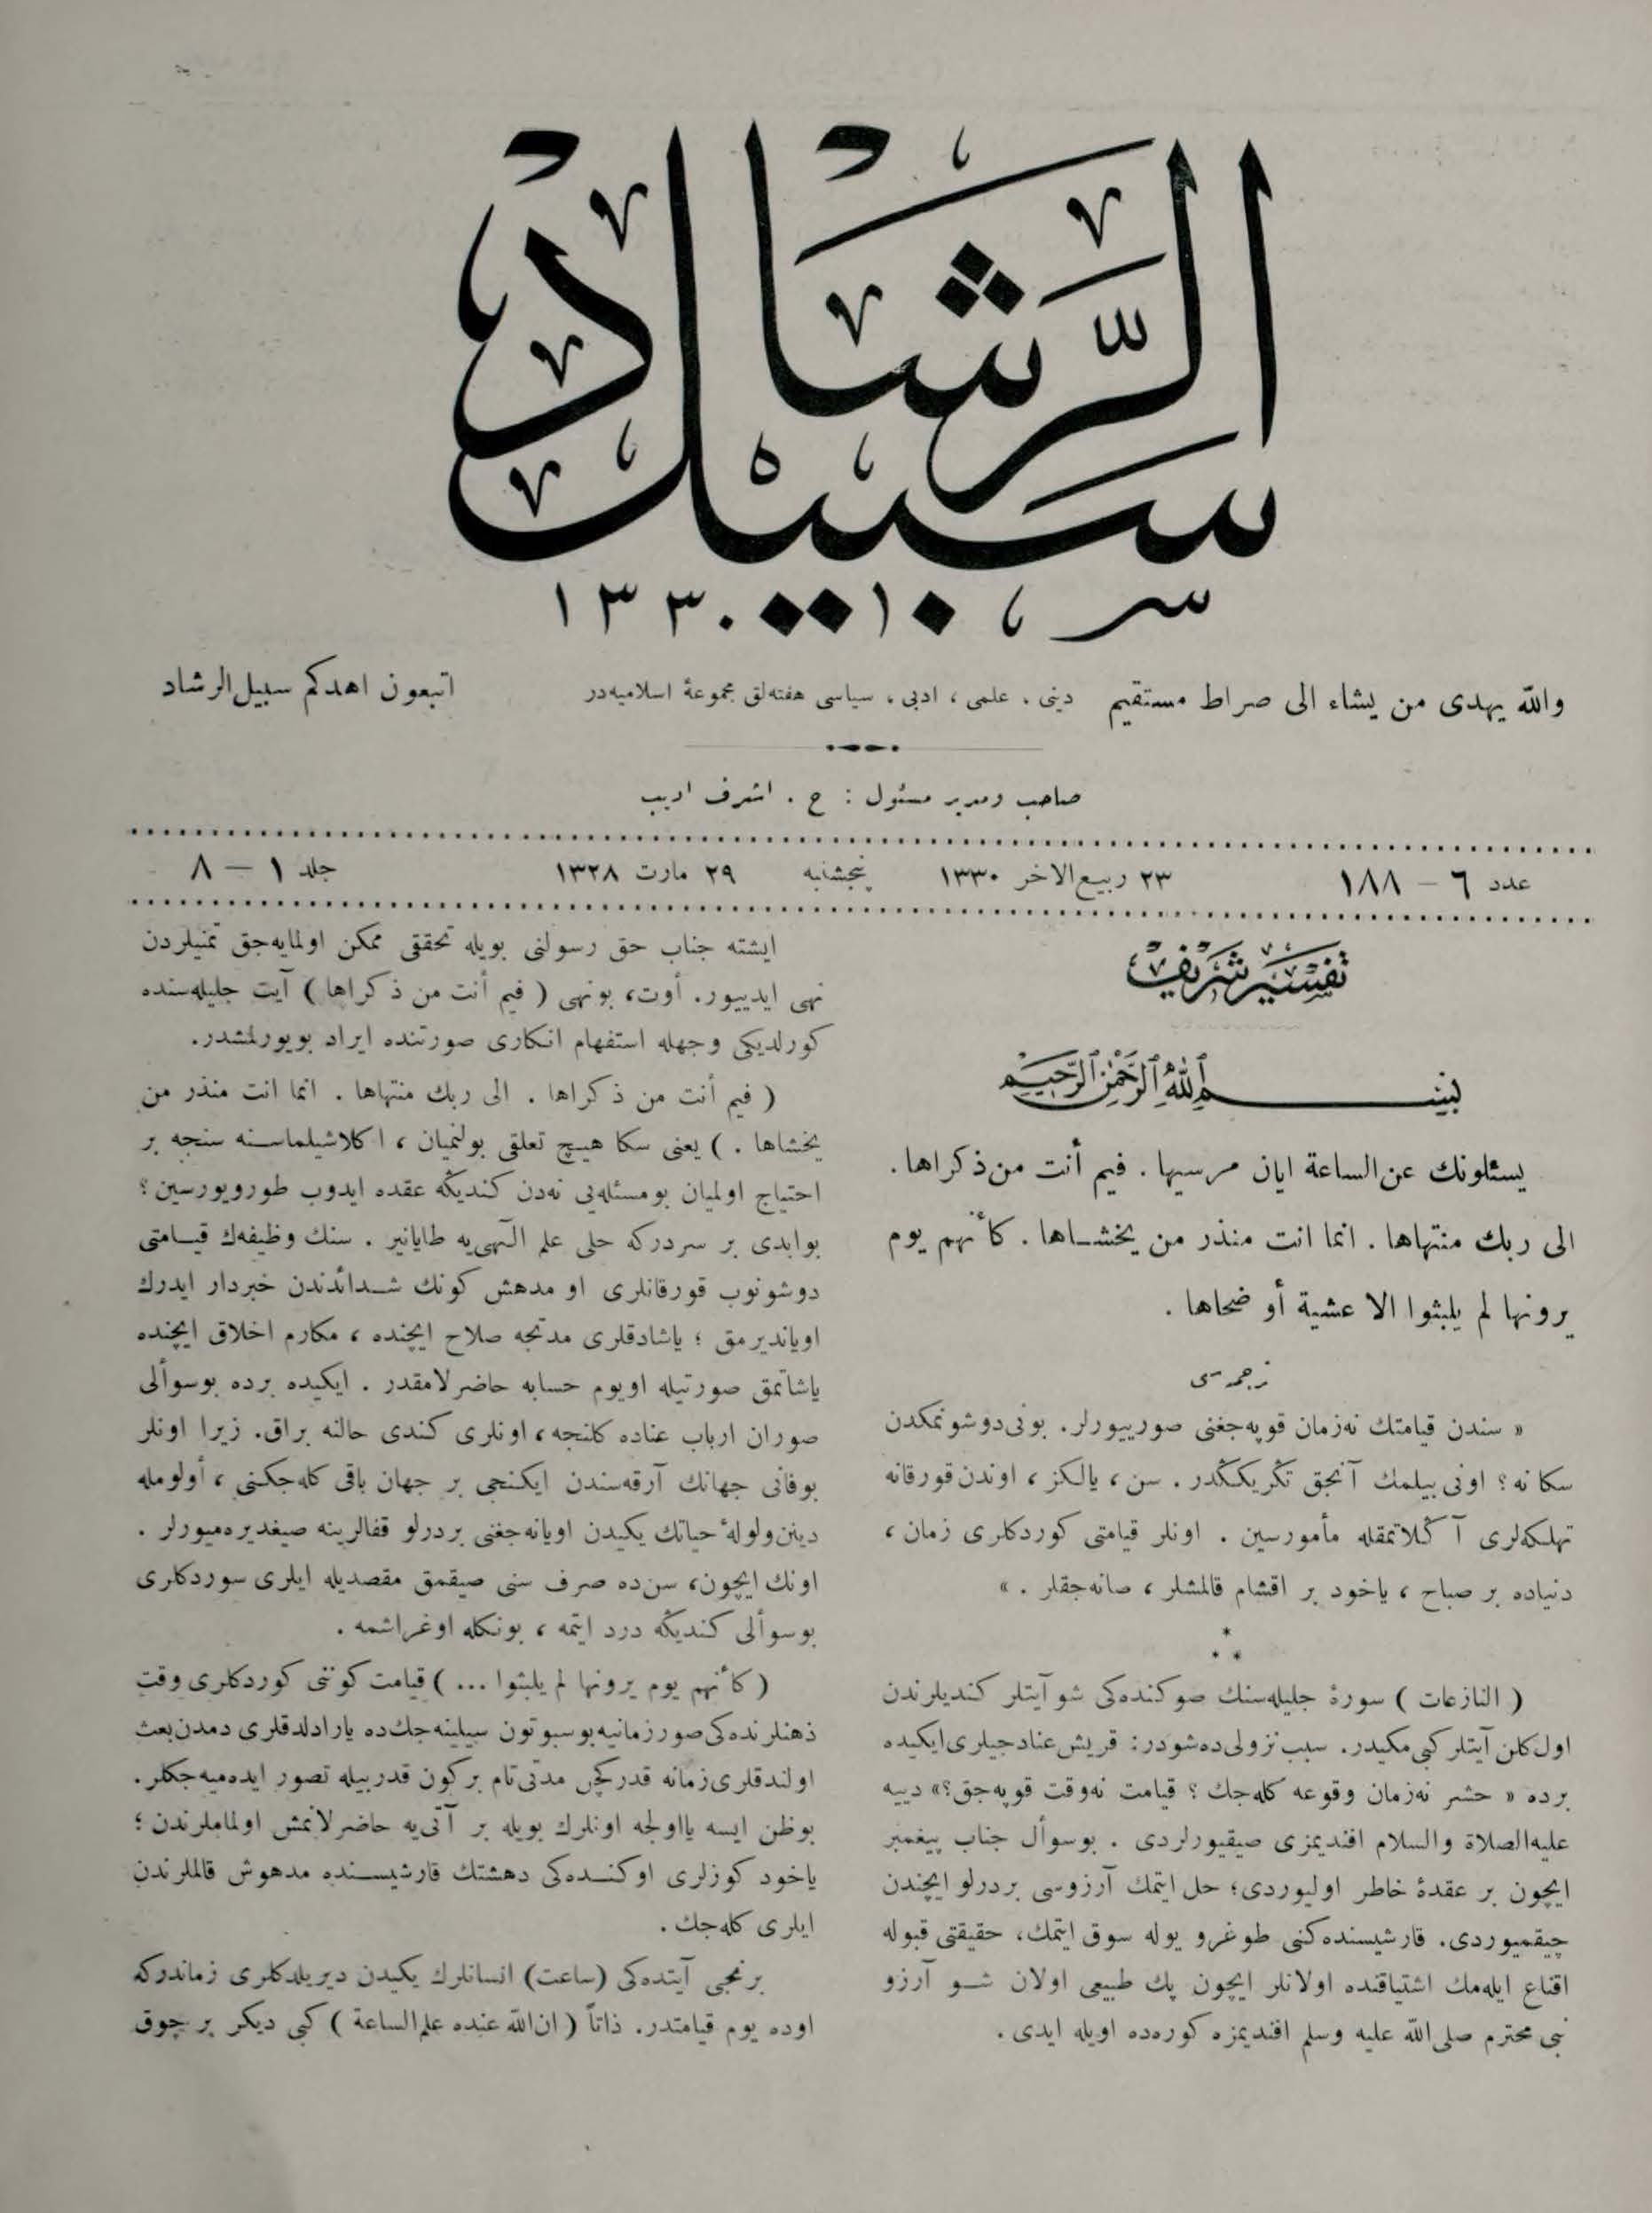 سبيل الرشاد
١٣٣٠
والله يهدى من يشاء الى صراط مستقيم
دينى ، علمى ، ادبى ، سياسى هفته‌لق مجموعهٔ اسلاميه‌در
اتبعون اهدكم سبيل الرشاد
صاحب ومدير مسئول : ح . اشرف اديب
عدد ٦ – ١٨٨
٢٣ ربيع الاخر ١٣٣٠
پنجشنبه
٢٩ مارت ١٣٢٨
جلد ١ – ٨
تفسير شريف
بسم الله الرحمن الرحيم
يسئلونك عن الساعة ايان مرسيها . فيم أنت من ذكراها .
الى ربك منتهاها . انما انت منذر من يخشاها . كأنهم يوم
يرونها لم يلبثوا الا عشية أو ضحاها .
ترجمه‌سى
« سندن قيامتك نه‌زمان قوپه‌جغنى صورييورلر. بونى دوشونمكدن
سكا نه؟ اونى بيلمك آنجق تكريكڭدر . سن ، يالكز ، اوندن قورقانه
تهلكه‌لرى آڭلاتمقله مأمورسين . اونلر قيامتى كوردكلرى زمان ،
دنياده بر صباح ، ياخود بر اقشام قالمشلر ، صانه‌جقلر . »
* * *
( النازعات ) سورهٔ جليله‌سنك صوكنده‌كى شو آيتلر كنديلرندن
اول كلن آيتلر كبى مكيدر. سبب نزولى ده شودر: قريش عنادجيلرى ايكيده
برده « حشر نه‌زمان وقوعه كله‌جك ؟ قيامت نه‌وقت قوپه‌جق؟» دييه
عليه الصلاة والسلام افنديمزى صيقيورلردى . بوسوأل جناب پيغمبر
ايچون بر عقدهٔ خاطر اوليوردى؛ حل ايتمك آرزوسى بردرلو ايچندن
چيقميوردى. قارشيسنده‌كنى طوغرو يوله سوق ايتمك، حقيقتى قبوله
اقناع ايله‌مك اشتياقنده اولانلر ايچون پك طبيعى اولان شو آرزو
نبى محترم صلى الله عليه وسلم افنديمزه كوره‌ده اويله ايدى .
ايشته جناب حق رسولنى بويله تحققى ممكن اولمايه‌جق تمنيلردن
نهى ايدييور. أوت، بونهى ( فيم أنت من ذكراها ) آيت جليله‌سنده
كورلديكى وجهله استفهام انكارى صورتنده ايراد بويورلمشدر.
( فيم أنت من ذكراها . الى ربك منتهاها . انما انت منذر من
يخشاها . ) يعنى سكا هيچ تعلقى بولنميان ، اكلاشيلماسنه سنجه بر
احتياج اولميان بومسئله‌يى نه‌دن كنديڭه عقده ايدوب طورويورسين؟
بوابدى بر سردركه حلى علم الهى‌يه طايانير . سنك وظيفه‌ك قيامتى
دوشونوب قورقانلرى او مدهش كونك شدائدندن خبردار ايدرك
اويانديرمق ؛ ياشادقلرى مدتجه صلاح ايچنده ، مكارم اخلاق ايچنده
ياشاتمق صورتيله اويوم حسابه حاضرلامقدر . ايكيده برده بوسوألى
صوران ارباب عناده كلنجه ، اونلرى كندى حالنه براق. زيرا اونلر
بوفانى جهانك آرقه‌سندن ايكنجى بر جهان باقى كله‌جكنى ، أولومله
دينن ولولهٔ حياتك يكيدن اويانه‌جغنى بردرلو قفالرينه صيغديره‌ميورلر .
اونك ايچون، سن‌ده صرف سنى صيقمق مقصديله ايلرى سوردكلرى
بوسوألى كنديڭه درد ايتمه ، بونكله اوغراشمه .
( كأنهم يوم يرونها لم يلبثوا ... ) قيامت كوننى كوردكلرى وقت
ذهنلرنده‌كى صور زمانيه بوسبوتون سيلينه‌جك‌ده يارادلدقلرى دمدن بعث
اولندقلرى زمانه قدر كچن مدتى تام بركون قدر بيله تصور ايده‌ميه‌جكلر.
بوظن ايسه يا اولجه اونلرك بويله بر آتى‌يه حاضرلانمش اولماملرندن ؛
ياخود كوزلرى اوكنده‌كى دهشتك قارشيسنده مدهوش قالملرندن
ايلرى كله‌جك .
برنجى آيتده‌كى (ساعت) انسانلرك يكيدن ديريلدكلرى زماندركه
اوده يوم قيامتدر. ذاتاً ( ان الله عنده علم الساعة ) كبى ديكر بر چوق